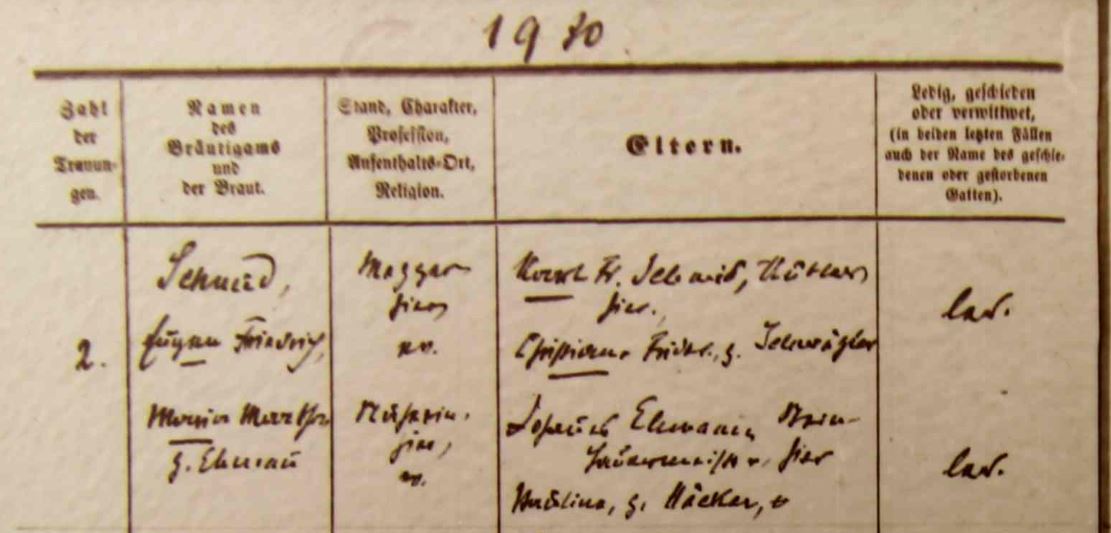 1930
Zahl
der
Trauun-
gen.
Namen
des
Bräutigams
und
der Braut.
Stand, Charakter,
Profession,
Aufenthalts-Ort,
Religion.
Eltern.
Ledig, geschieden
oder verwittwet,
(in beiden letzten Fällen
auch der Name des geschie-
denen oder gestorbenen
Gatten).
2.
Schmid,
Eugen Friedrich,
Maria Martha
g. Ehmann
Metzger
hier,
ev.
Näherin,
hier,
ev.
Karl Fr. Schmid, Küfer,
hier.,
Christiane Frider., g. Schwägler
Johannes Ehmann, Stein-
hauermeister, hier
Pauline, g. Häcker,
led.
led.